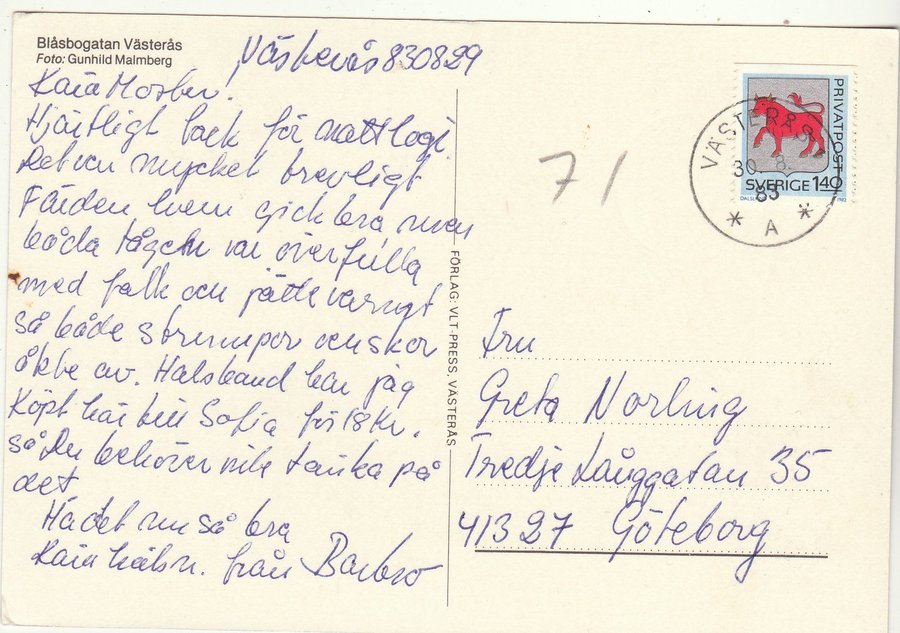 Blåsbogatan Västerås
Foto: Gunhild Malmberg
Västerås 830829
Kära Moster!
Hjärtligt tack för nattlogi.
Det var mycket trevligt
Färden hem gick bra men
båda tågen var överfulla
med folk och jättevarmt
så både strumpor och skor
åkte av. Halsband har jag
köpt här till Sofia för 18 kr.
så Du behöver inte tänka på
det
Ha det nu så bra
Kära häls. från Barbro
FÖRLAG: VLT-PRESS, VÄSTERÅS
71
PRIVATPOST
SVERIGE 140
VÄSTERÅS
30. 8.
83
* A *
Fru
Greta Norling
Tredje Långgatan 35
41327 Göteborg